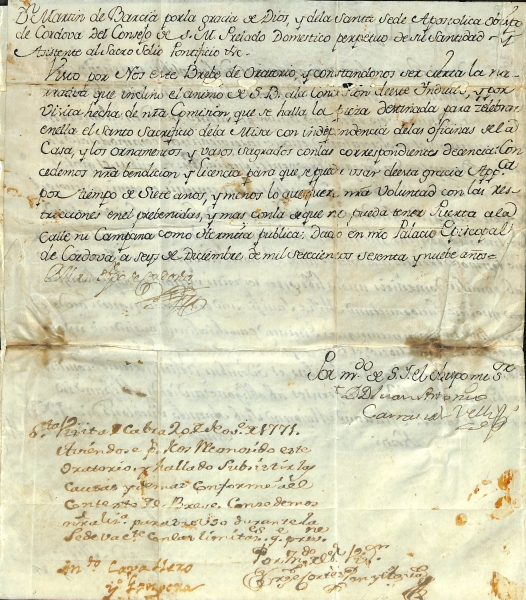 Dn. Martin de Barcia por la gracia de Dios, y de la Santa Sede Apostolica Obispo
de Cordova del Consejo de S.M. Prelado Domestico perpetuo de su Santidad
Asistente al Sacro Solio Pontificio &c.
Visto por Nos este Brebe de Oratorio, y constandonos ser cierta la na-
rrativa que inclinó el animo de S.B. a la Concesion de este Indulto, y por
Visita hecha de nra Comision, que se halla la pieza destinada para celebrar
en ella el Santo Sacrificio de la Misa con independencia de las oficinas de la
Casa, y los ornamentos, y vasos sagrados con las correspondientes decencias: Con-
cedemos nra bendicion, y licencia para que se pueda usar de esta gracia Appca.
por tiempo de Siete años, y menos lo que fuere nra Voluntad con las res-
tricciones en el prebenidas, y mas con la de que no pueda tener Puerta a la
Calle ni Campana como Hermita publica. Dado en nro Palacio Episcopal
de Cordova, a seys de Diciembre de mil setecientos sesenta y nuebe años
Por mdo. de S.I. el Obispo mi Sr.
Dn. Juan Antonio
Carrascal
Sta. Visita Cabra 20 de 1771.
este
Oratorio, y hallado Subsistir las
Causas y demas conforme a el
Contexto de Breve. Concedemos
nra liza. para su uso durante la
Sede vacte. con las limites. q. preve.
Por mdo. de
Caballero